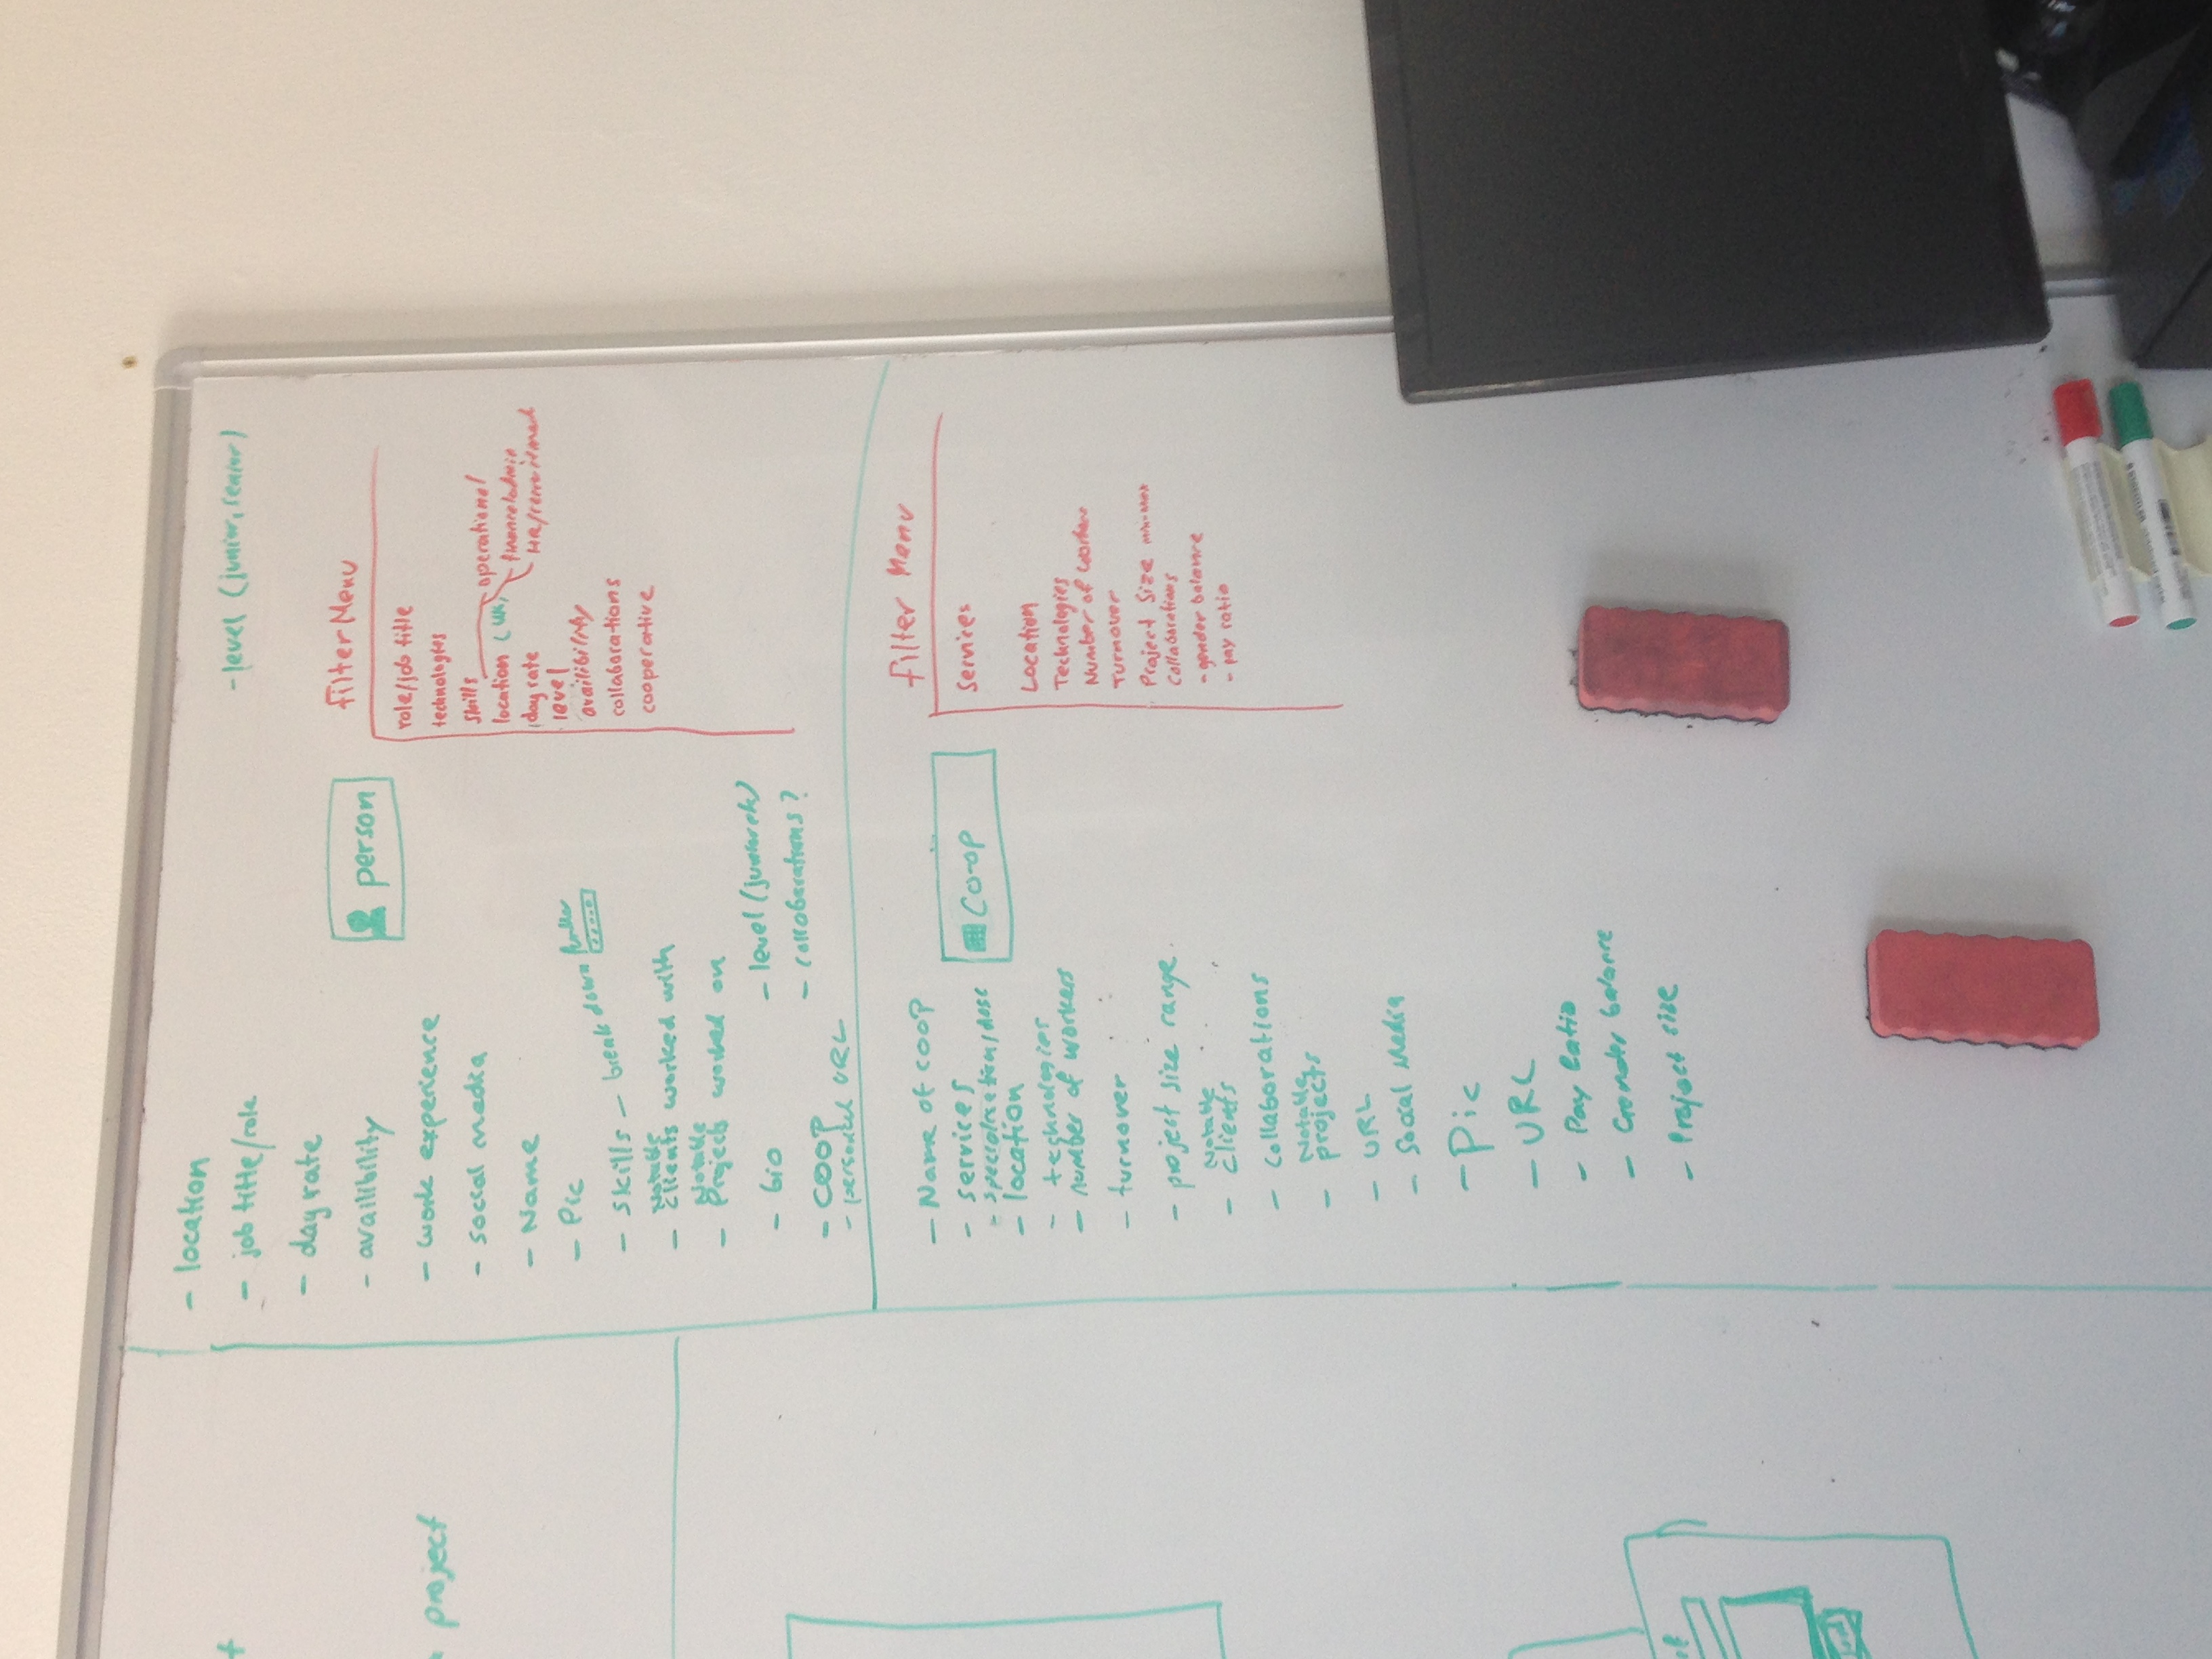 project
- location
- job title/role
- day rate
- availibility
- work experience
- social media
- Name
- Pic
- skills - break down further
Notable
- clients worked with
Notable
- Projects worked on
- bio
- coop
- personal URL
- level (junior etc)
- collaborations?
person
- level (junior, senior)
filter Menu
role/job title
technologies
skills
operational
finance/admin
HR/recruitment
location (UK)
day rate
level
availibility
collaborations
cooperative
- Name of coop
- services
- location
- technologies
- number of workers
- turnover
- project size range
Notable
- clients
- collaborations
Notable
- projects
- URL
- Social Media
- Pic
- URL
- Pay Ratio
- Gender balance
- Project size
Co-op
filter Menu
Services
Location
Technologies
Number of workers
Turnover
Project Size min-max
Collaborations
- gender balance
- pay ratio